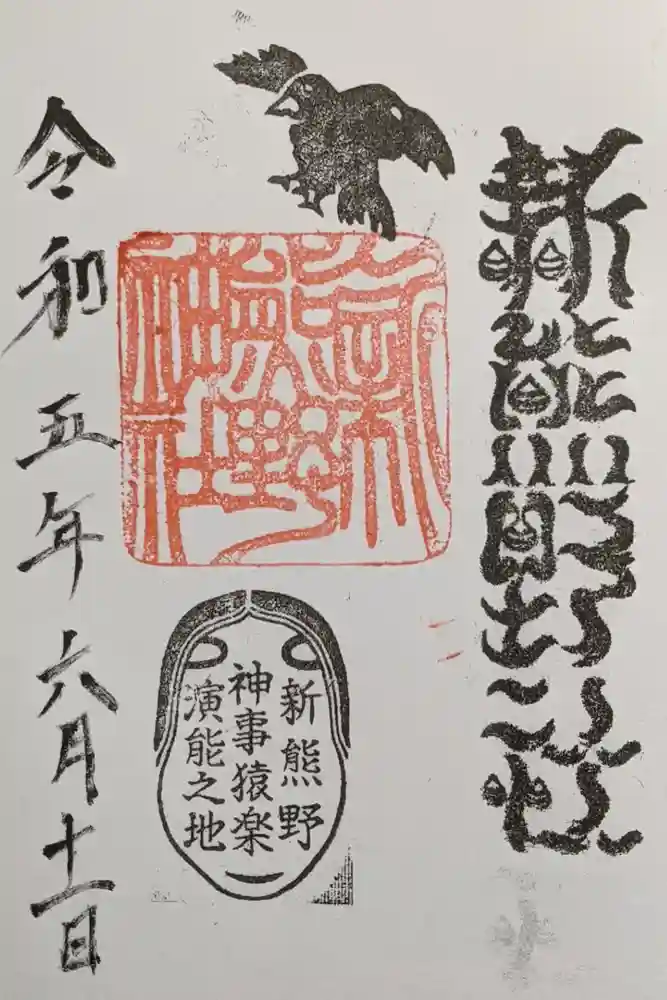 新熊野社
新熊野神社
新熊野
神事猿楽
演能之地
令和五年六月十一日